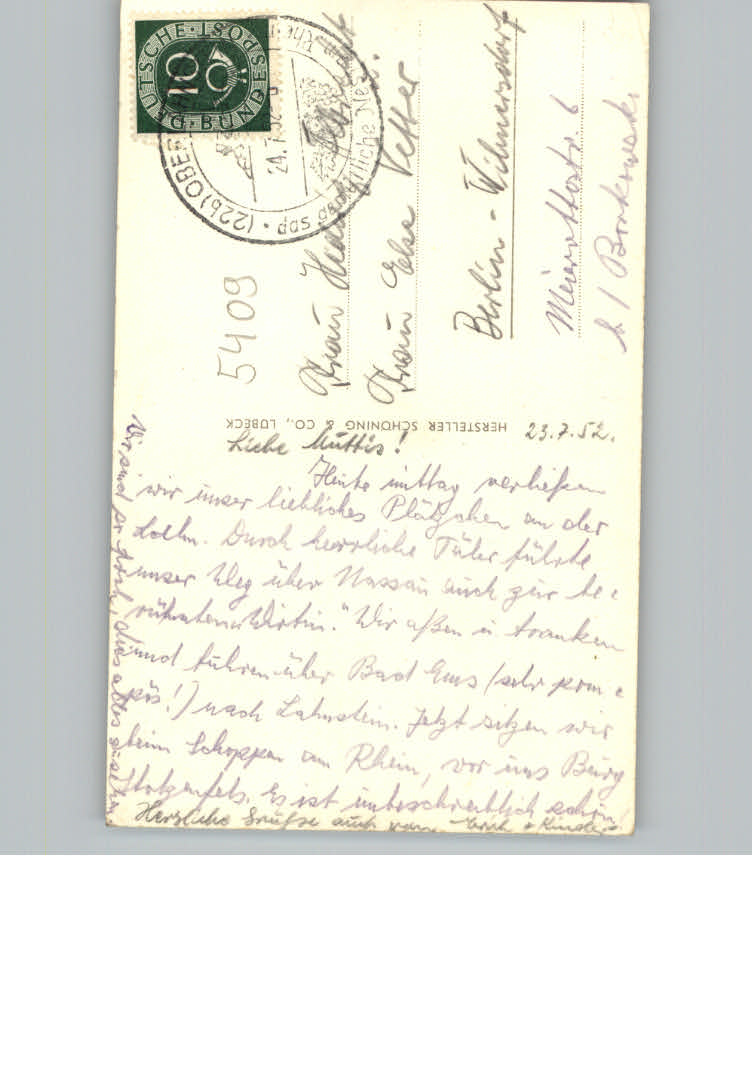 DEUTSCHE BUNDESPOST
10
(22b) OBER
24.7.52
das rheinische Nes
5409
Frau
Frau Else Vetter
Berlin - Wilmersdorf
Meierottostr. 6
b / Borkowski
HERSTELLER SCHÖNING & CO., LÜBECK
23.7.52.
Liebe Muttis!
Heute mittag verließen
wir unser liebliches Plätzchen an der
Lahn. Durch herrliche Täler führte
unser Weg über Nassau auch zur be=
rühmten „Wirtin." Wir aßen u. tranken
und fuhren über Bad Ems (sehr pom=
pös!) nach Lahnstein. Jetzt sitzen wir
beim Schoppen am Rhein, vor uns Burg
Stolzenfels. Es ist unbeschreiblich schön!
Wir sind so froh, dies alles zu sehen
Herzliche Grüße auch von Erich + Kinder